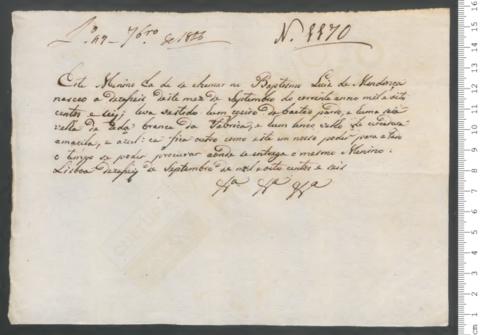 Nº 1170
Este Menino ha de se chamar no Baptismo Luis de Mendonça
nasceo a dezaseis deste mez de Septembro do corrente anno mil e oito
centos e seis; leva vestido hum de e huma
volta de seda branca da Fabrica, e hum lenço
amarela, e azul: ca fica outro como este em nosso poder para a todo
o tempo se poder procurar aonde se entrega o mesmo Menino.
Lisboa dezaseis de Septembro de mil e oito centos e seis